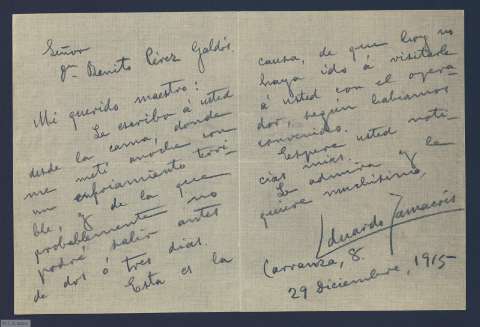 Señor
Dn. Benito Pérez Galdós.
Mi querido maestro:
Le escribo á usted
desde la cama, donde
me metí anoche con
un enfriamiento terri-
ble, y de la que
probablemente no
podré salir antes
de dos ó tres días.
Esta es la
causa, de que hoy no
haya ido á visitarle
á usted con el opera-
dor, según habíamos
convenido.
Espere usted noti-
cias mías.
Le admira y le
quiere muchísimo,
Eduardo Zamacois
Carranza, 8.
29 Diciembre, 1915-